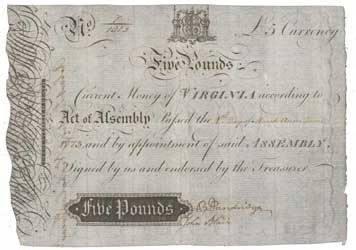 No. 1313 £5 Currency
Five Pounds
Current Money of VIRGINIA according to
Act of Assembly Passed the
1773 and by appointment of said ASSEMBLY.
Signed by us and endorsed by the Treasurer
Five Pounds
John Blair